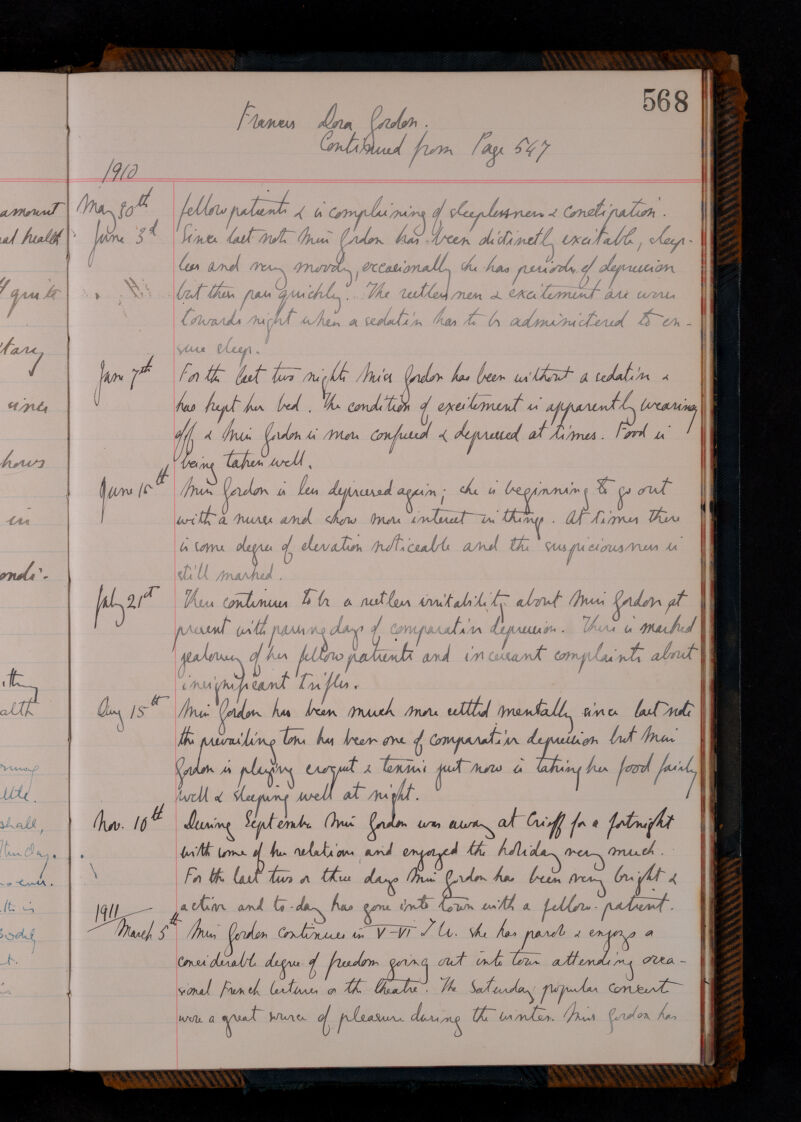 568
Frances Dora Gordon.
Continued from Page 547
1910
May 30th fellow patients & is complaining of sleeplessness & constipation.
June 3d Since last note Miss Gordon has been distinctly excitable, sleep-
less and very moody, occasionally she has periods of depression
but these pass quickly. The restlessness & excitement are worse
towards night when a sedative has to be administered to en-
sure sleep.
June 7th For the last two nights Miss Gordon has been without a sedative &
has kept her bed. The condition of excitement is apparently wearing
off & Miss Gordon is more confused & depressed at times. Food is
being taken well.
June 15th Miss Gordon is less depressed again; she is beginning to go out
with a nurse and show more interest in things. At times there
is some degree of elevation noticeable and the suspiciousness is
still marked.
July 21st There continues to be a restless irritability about Miss Gordon at
present with passing days of comparative depression. There is marked
jealousy of her fellow patients and incessant complaints about
insignificant trifles.
Aug 15th Miss Gordon has been much more settled mentally since last note
the prevailing tone has been one of comparative depression but Miss
Gordon is playing croquet & tennis just now is taking her food fairly
well & sleeping well at night.
Nov. 10th During September Miss Gordon was away at Crieff for a fortnight
with some of her relations and enjoyed the holiday very much.
For the last two or three days Miss Gordon has been very bright &
active and to-day has gone into town with a fellow-patient.
1911
March 5th Miss Gordon continues in V-VI she has parole & enjoys a
considerable degree of freedom going out into town attending occa-
sional French lectures or the theatre. The Saturday popular concerts
were a great source of pleasure during the winter. Miss Gordon has
amount
health
quite
since
shows
in
health
shall,